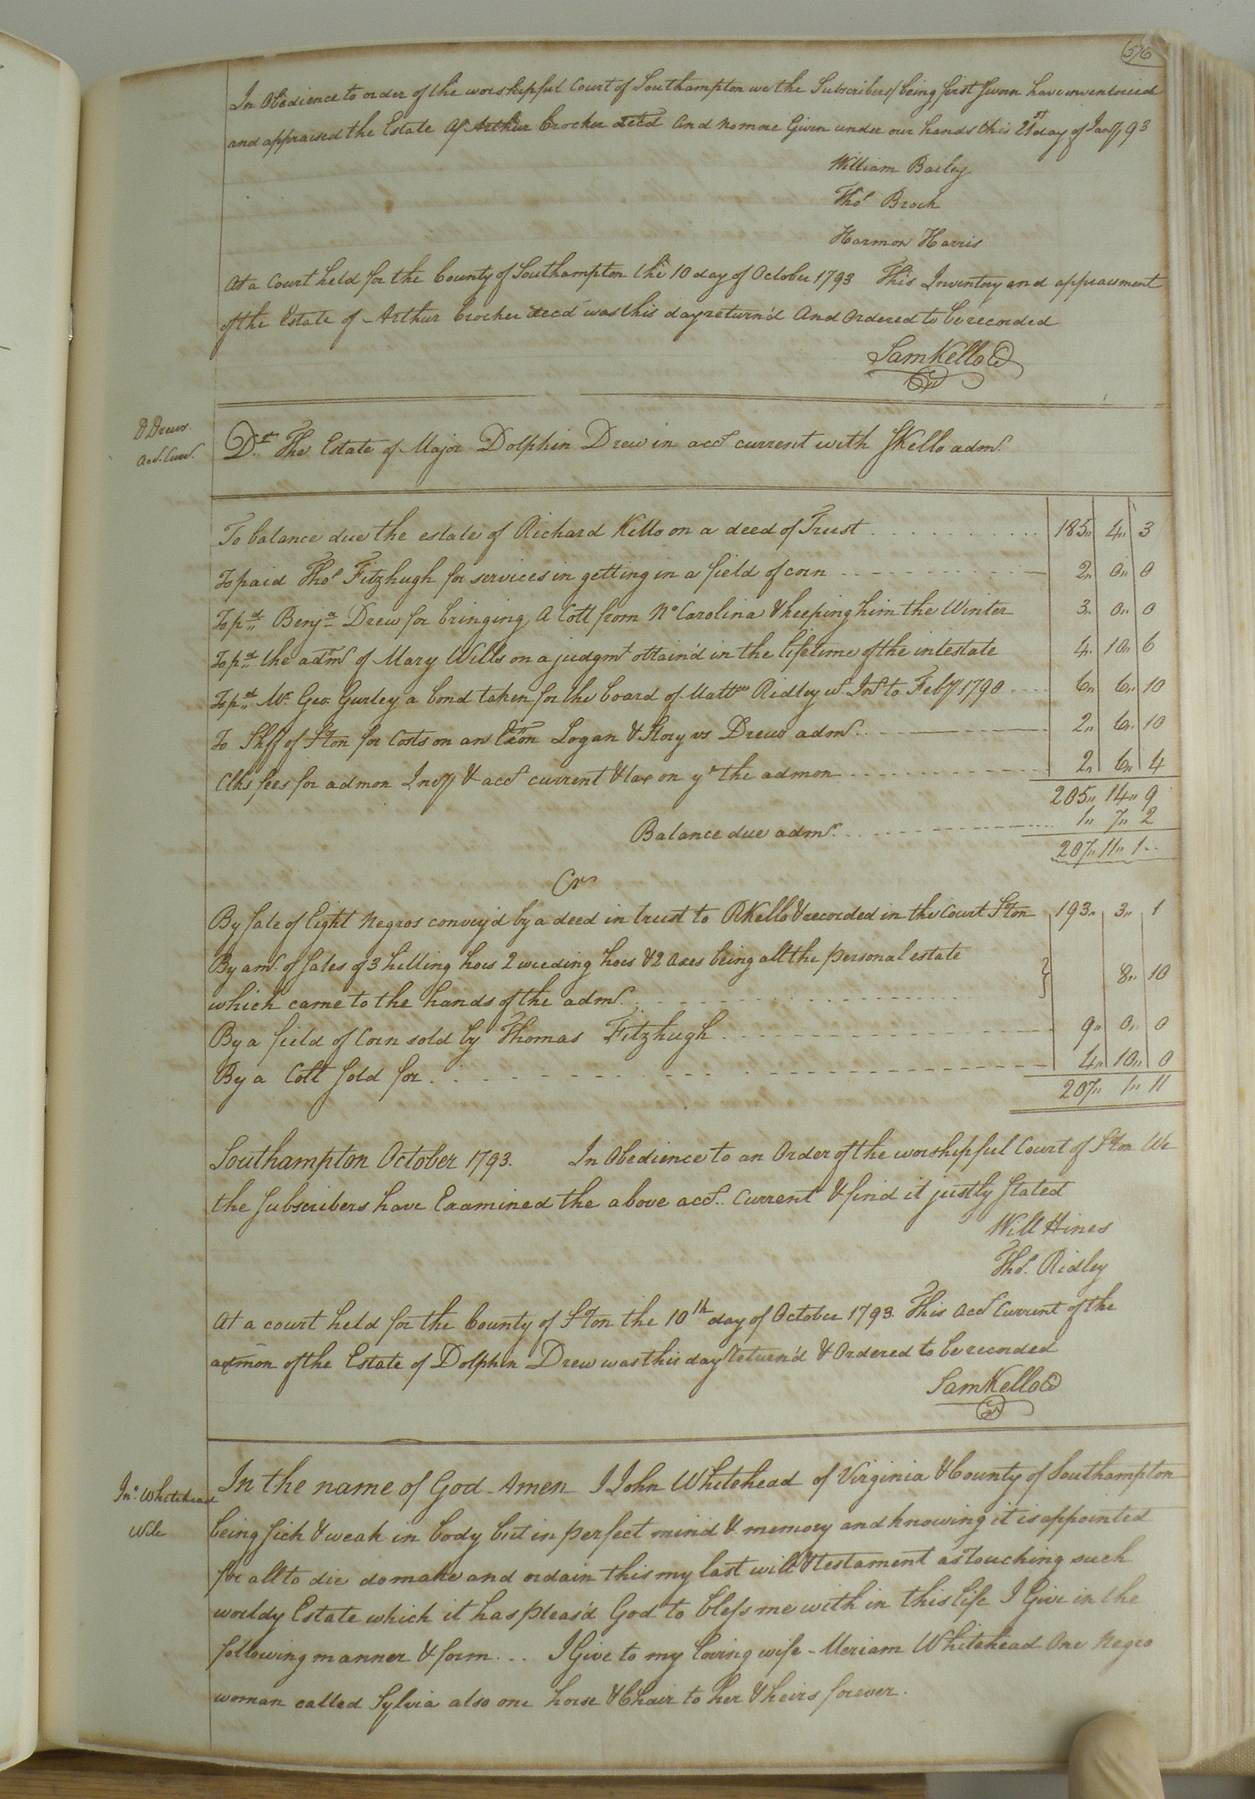 576
In Obedience to order of the worshipful Court of Southampton we the Subscribers being first Sworn have inventoried
and appraised the Estate of Arthur Crocker decd And no more Given under our hands this 21st day of Jany 93
William Bailey
Thos Brock
Harmon Harris
At a Court held for the County of Southampton the 10 day of October 1793 This Inventory and appraisment
of the Estate of Arthur Crocker decd was this day return'd And Ordered to be recorded
Sam Kello
D Drews
Acct. Curr.
Dr. The Estate of Major Dolphin Drew in acct current with S Kello admr.
To balance due the estate of Richard Kello on a deed of Trust 185 " 4 " 3
To paid Thos Fitzhugh for services in getting in a field of corn 2 " 0 " 0
To pd Benja Drew for bringing A Colt from No Carolina & keeping him the Winter 3 " 0 " 0
To pd the admr of Mary Wills on a judgmt obtain'd in the lifetime of the intestate 4 " 10 " 6
To pd Mr Geo. Gurley a bond taken for the board of Mattw Ridley wt Int to Feby 1790 6 " 6 " 10
To Shff of S'ton for Costs on an Exon Logan & Story vs Drews admr. 2 " 6 " 10
Clks fees for admon Invy & acct current & tax on ye the admon 2 " 6 " 4
205 " 14 " 9
Balance due admr. 1 " 7 " 2
207 " 11 " 1
Cr
By Sale of Eight Negros convey'd by a deed in trust to R Kello & recorded in the Court S'ton 193 " 3 " 1
By amt. of Sales of 3 hilling hoes 2 weeding hoes & 2 Axes being all the personal estate
which came to the hands of the admr. 8 " 10
By a field of Corn sold by Thomas Fitzhugh 9 " 0 " 0
By a Colt sold for 4 " 10 " 0
207 " 1 " 11
Southampton October 1793. In Obedience to an Order of the worshipful Court of S'ton We
the Subscribers have Examined the above acct. Current & find it justly Stated
Will Hines
Thos. Ridley
At a court held for the County of S'ton the 10th day of October 1793. This Acct Current of the
admon of the Estate of Dolphin Drew was this day return'd & Ordered to be recorded
Sam Kello
Jno. Whitehead
Will
In the name of God Amen I John Whitehead of Virginia & County of Southampton
being sick & weak in body but in perfect mind & memory and knowing it is appointed
for all to die do make and ordain this my last will & testament as Touching such
worldy Estate which it has pleas'd God to bless me with in this life I Give in the
following manner & form... I Give to my loving wife Meriam Whitehead One Negro
woman called Sylvia also one horse & Chair to her & heirs forever.